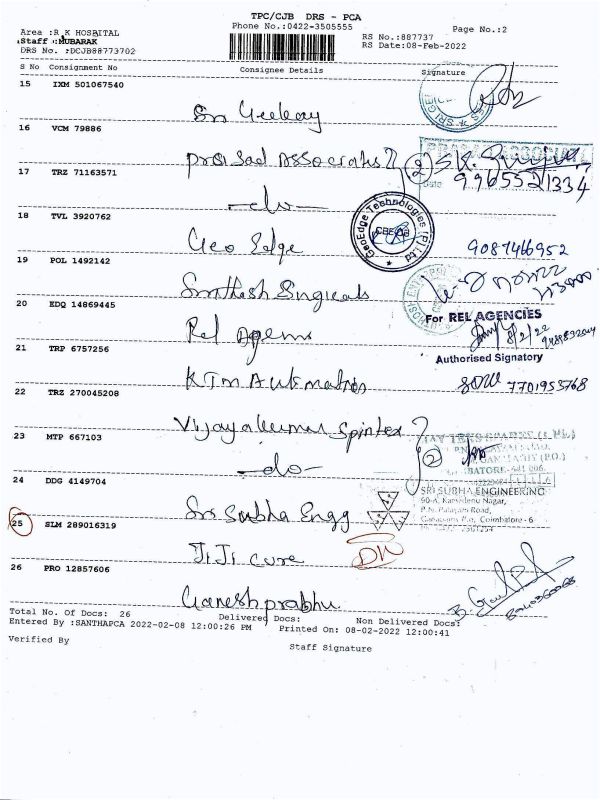 TPC/CJB DRS - PCA
Phone No.:0422-3505555
Page No.:2
Area :R K HOSPITAL
Staff :MUBARAK
DRS No. :DCJB88773702
RS No.:887737
RS Date:08-Feb-2022
S No Consignment No Consignee Details Signature
15 IXM 501067540
Sri Geekay
16 VCM 79886
Prasad Associates
(2)
9965521334
17 TRZ 71163571
-do-
18 TVL 3920762
Geo Edge
GeoEdge Technologies (P) Ltd
CBE-
9087466952
19 POL 1492142
Smithesh Surgicals
20 EDQ 14869445
Rel Agems
For REL AGENCIES
8/2/22
Authorised Signatory
21 TRP 6757256
KTM Automatros
7701953768
22 TRZ 270045208
Vijayakumar Spintex
23 MTP 667103
-do-
(2)
24 DDG 4149704
Sri Subha Engg
SRI SUBHA ENGINEERING
90-A, Kamadenu Nagar,
P.N. Palayam Road,
Ganapathy P.o., Coimbatore - 6
25 SLM 289016319
JiJi cure
DN
26 PRO 12857606
Ganeshprabhu
Total No. Of Docs: 26 Delivered Docs: Non Delivered Docs:
Entered By :SANTHAPCA 2022-02-08 12:00:26 PM Printed On: 08-02-2022 12:00:41
Verified By
Staff Signature